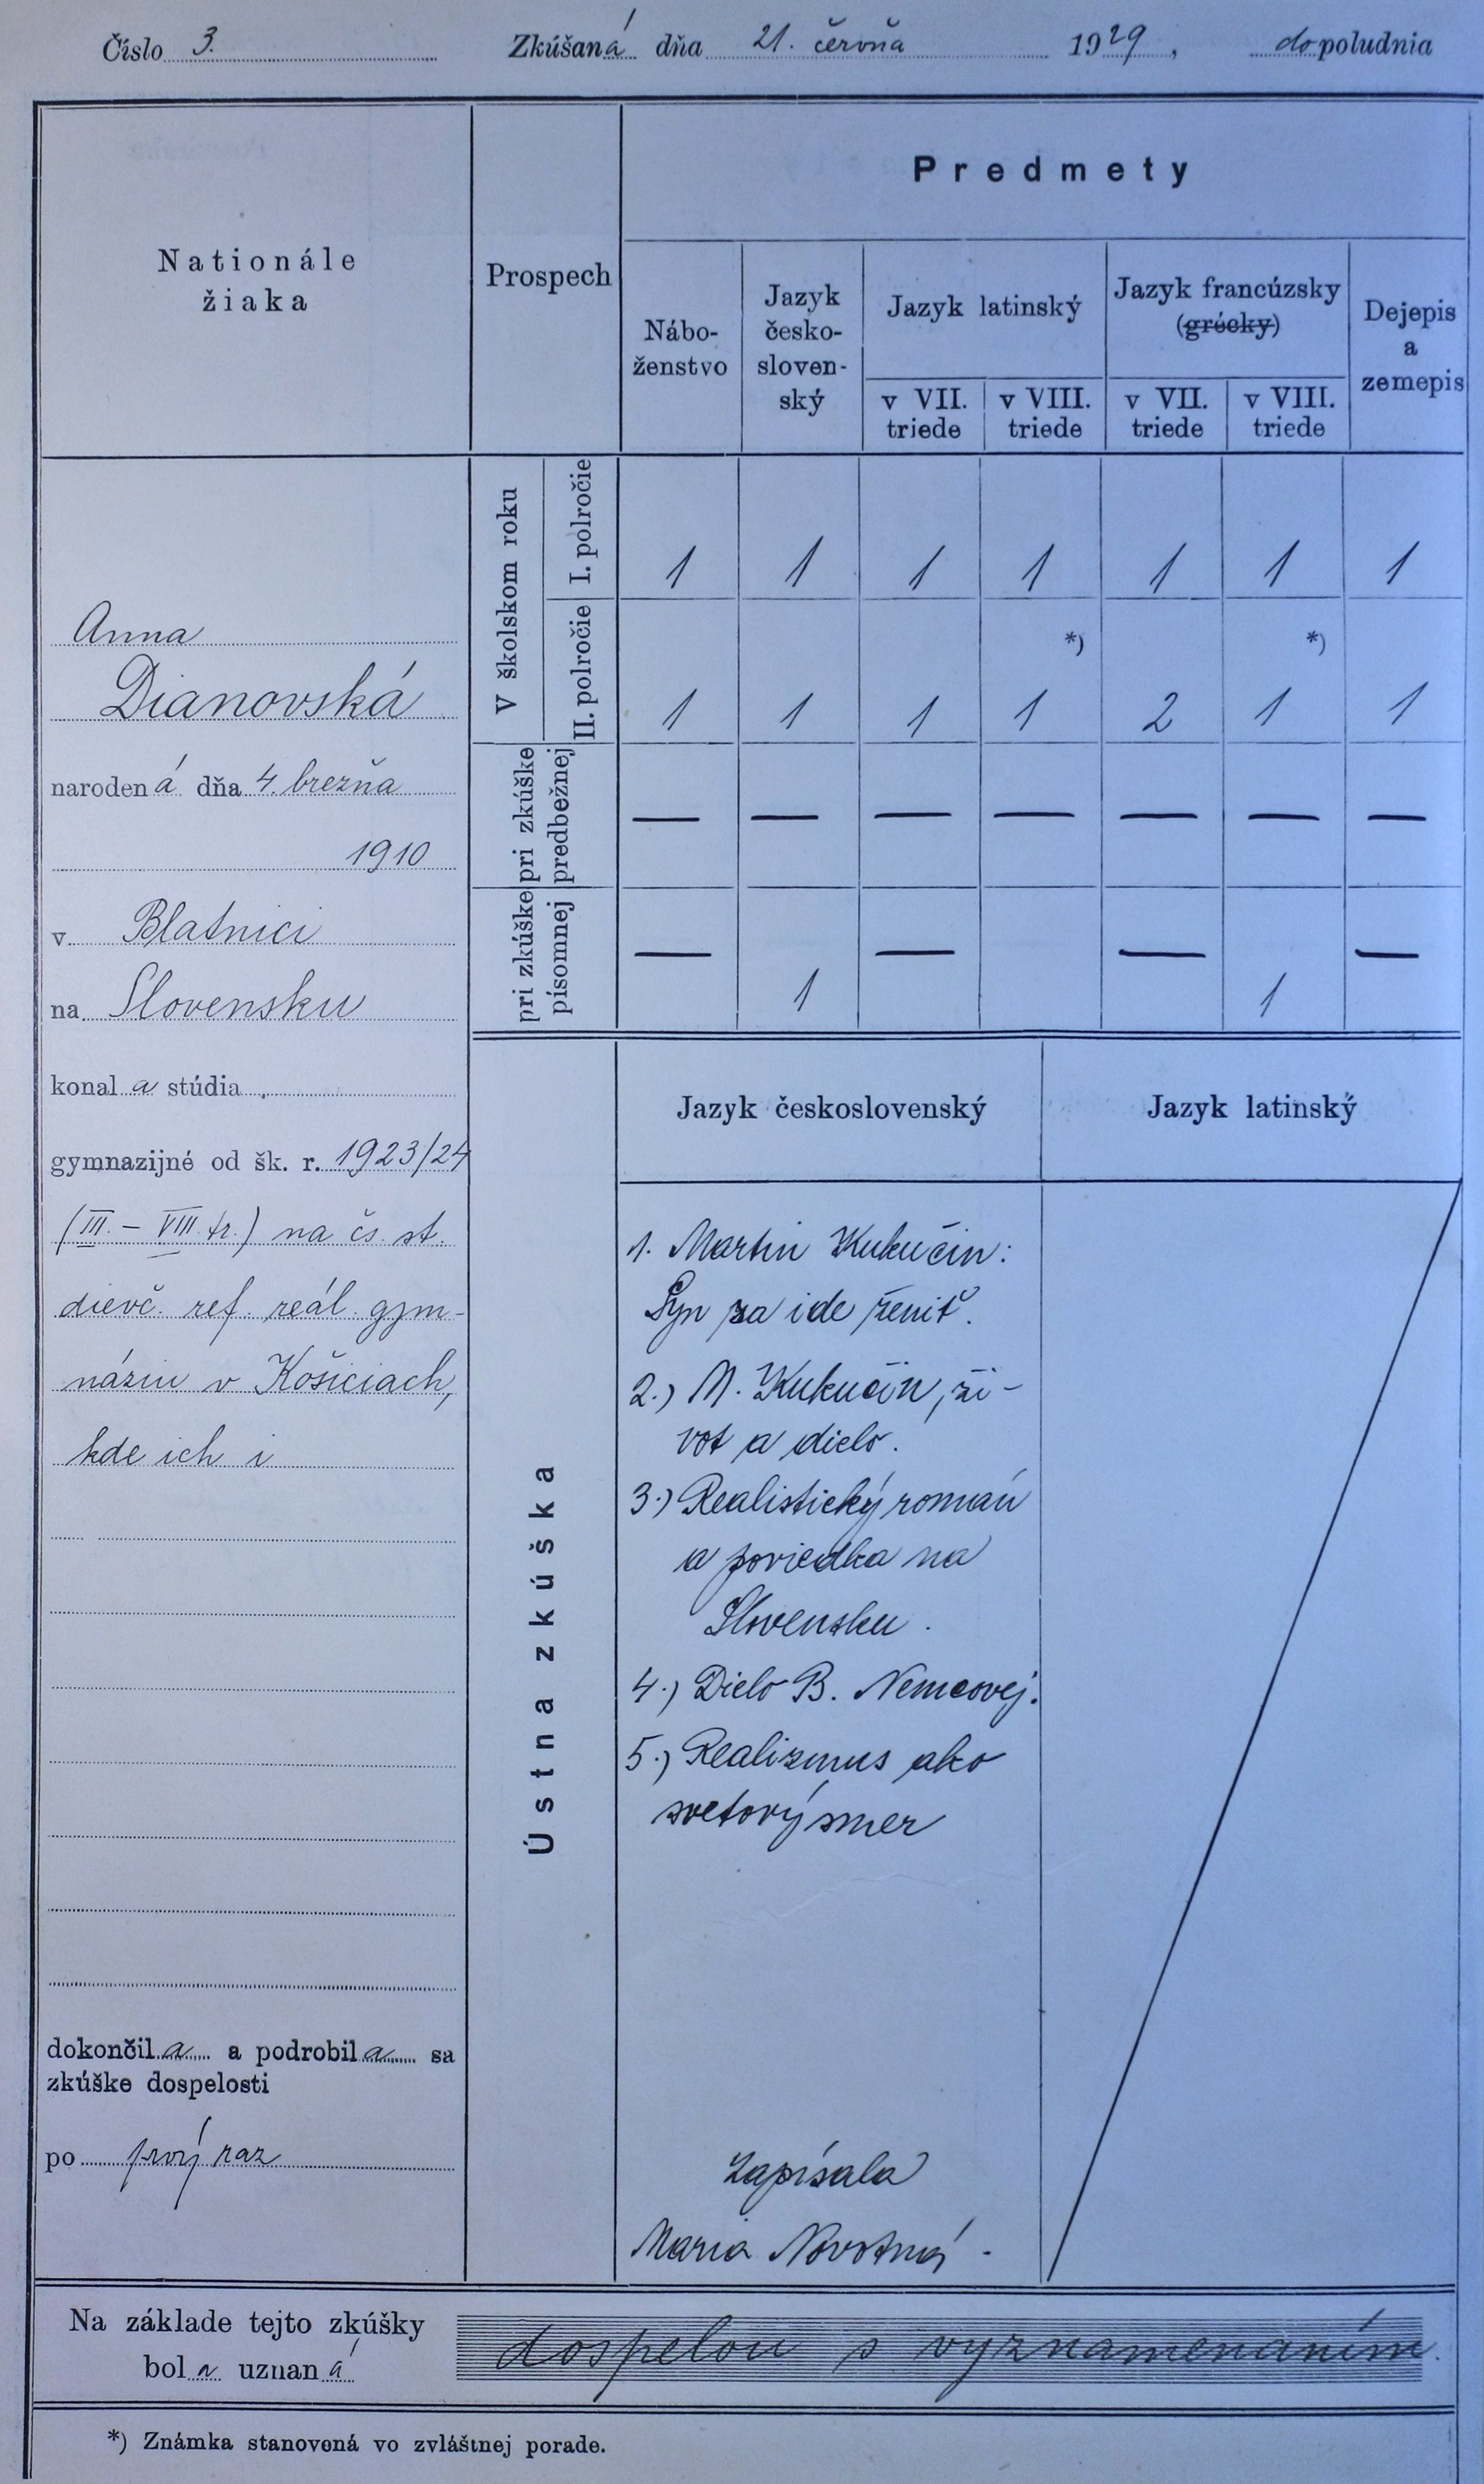 Číslo 3. Zkúšaná dňa 21. červňa 1929, dopoludnia
Nationále
žiaka
Prospech
Predmety
Nábo-
ženstvo
Jazyk
česko-
sloven-
ský
Jazyk latinský
v VII.
triede
v VIII.
triede
Jazyk francúzsky
(grécky)
v VII.
triede
v VIII.
triede
Dejepis
a
zemepis
Anna
Dianovská
narodená dňa 4. brezňa
1910
v Blatnici
na Slovensku
konala stúdia
gymnazijné od šk. r. 1923/24
(III. – VIII. tr.) na čs. st.
dievč. ref. reál. gym-
náziu v Košiciach,
kde ich i
dokončila a podrobila sa
zkúške dospelosti
po prvý raz
V školskom roku
I. polročie
1 1 1 1 1 1 1
II. polročie
*) *)
1 1 1 1 2 1 1
pri zkúške
predbežnej
— — — — — — —
pri zkúške
písomnej
— 1 — — 1 —
Ústna zkúška
Jazyk československý
1. Martin Kukučin:
Syn sa ide ženiť.
2.) M. Kukučin, ži-
vot a dielo.
3.) Realistický román
a poviedka na
Slovensku.
4.) Dielo B. Nemcovej.
5.) Realizmus ako
svetový smer
Zapísala
Maria Novotná.
Jazyk latinský
Na základe tejto zkúšky
bola uznaná dospelou s vyznamenaním.
*) Známka stanovená vo zvláštnej porade.